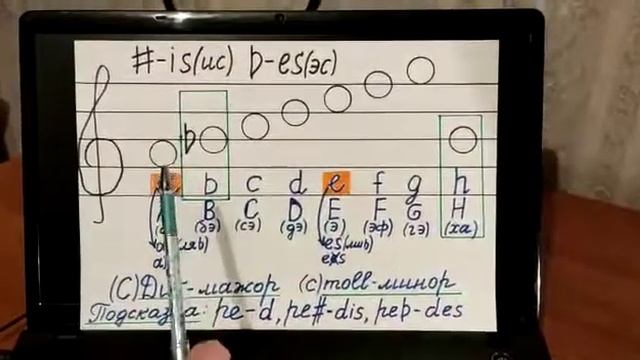 #-is(ис) b-es(эс)
b
b c d e f g h
B C D E F G H
(бэ) (сэ) (дэ) (э) (эф) (гэ) (ха)
(ляb) es(миb)
(C)Дur-мажор (c)moll-минор
Подсказка: ре-d, ре#-dis, реb-des